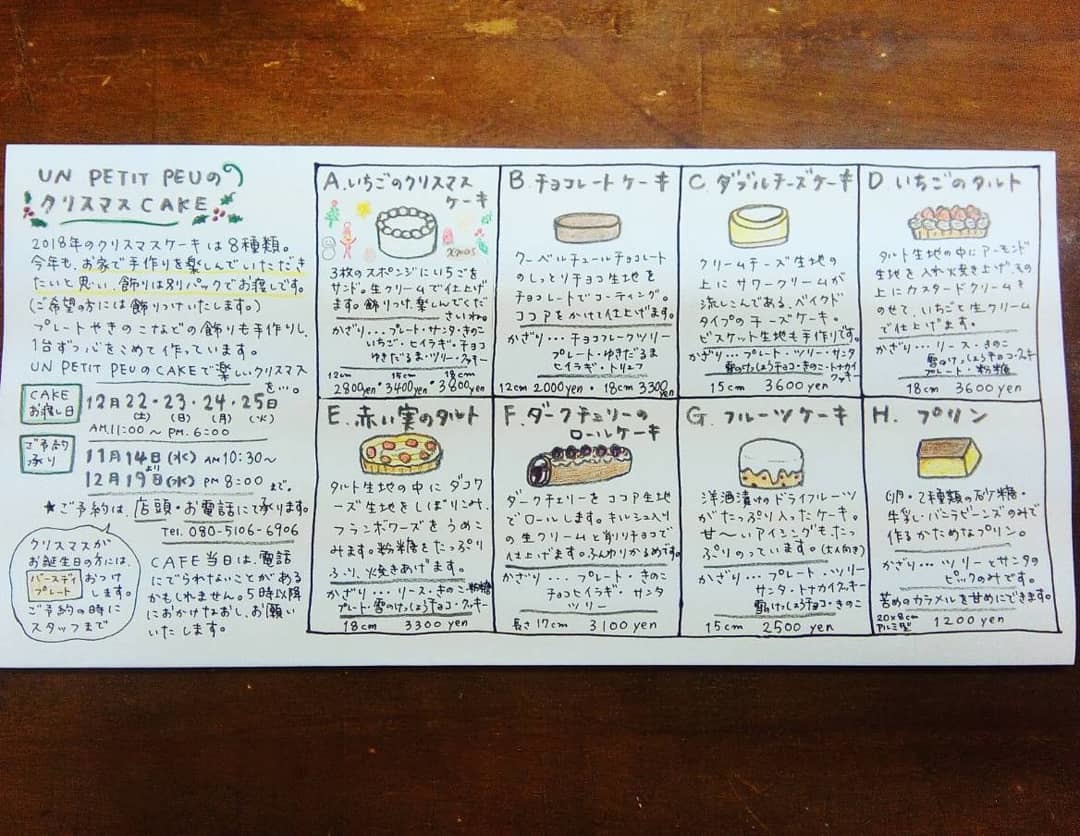 UN PETIT PEUの
クリスマスCAKE
2018年のクリスマスケーキは8種類。
今年も、お家で手作りを楽しんでいただき
たいと思い、飾りは別パックでお渡しです。
(ご希望の方には飾りつけいたします。)
プレートやきのこなどの飾りも手作りし、
1台ずつ心をこめて作っています。
UN PETIT PEUのCAKEで楽しいクリスマス
を…。
CAKE
お渡し日
12月22・23・24・25日
(土) (日) (月) (火)
AM.11:00〜PM.6:00
ご予約
承り
11月14日(水) AM10:30〜
より
12月19日(水) PM 8:00まで。
★ご予約は、店頭・お電話にて承ります。
Tel. 080-5106-6906
クリスマスが
お誕生日の方には、
バースディ
プレート
おつけ
します。
ご予約の時に
スタッフまで
CAFE当日は、電話
にでられないことがある
かもしれません。5時以降
におかけなおし、お願い
いたします。
A.いちごのクリスマス
ケーキ
Xmas
3枚のスポンジにいちごを
サンド。生クリームで仕上げ
ます。飾りつけ、楽しんでくだ
さいね。
かざり…プレート・サンタ・きのこ
いちご・ヒイラギ・チョコ
ゆきだるま・ツリー・クッキー
12cm 15cm 18cm
2800yen・3400yen・3800yen
B.チョコレートケーキ
クーベルチュールチョコレート
のしっとりチョコ生地を
チョコレートでコーティング。
ココアをかけて仕上げます。
かざり…チョコフレークツリー
プレート・ゆきだるま
ヒイラギ・トリュフ
12cm 2000yen・18cm 3300yen
C.ダブルチーズケーキ
クリームチーズ生地の
上にサワークリームが
流しこんである、ベイクド
タイプのチーズケーキ。
ビスケット生地も手作りです。
かざり…プレート・ツリー・サンタ
雪のけっしょうチョコ・きのこ・トナカイ
クッキー
15cm 3600yen
D いちごのタルト
タルト生地の中にアーモンド
生地を入れ焼き上げ、その
上にカスタードクリームを
のせて、いちごと生クリーム
で仕上げます。
かざり…リース・きのこ
雪のけっしょうチョコ・クッキー
プレート・粉糖
18cm 3600yen
E.赤い実のタルト
タルト生地の中にダコワ
ーズ生地をしぼりこみ、
フランボワーズをうめこ
みます。粉糖をたっぷり
ふり、焼きあげます。
かざり…リース・きのこ・粉糖
プレート・雪のけっしょうチョコ・クッキー
18cm 3300yen
F.ダークチェリーの
ロールケーキ
ダークチェリーをココア生地
でロールします。キルシュ入り
の生クリームと削りチョコで
仕上げます。ふんわりかるめです。
かざり…プレート・きのこ
チョコヒイラギ・サンタ
ツリー
長さ17cm 3100yen
G.フルーツケーキ
洋酒漬けのドライフルーツ
がたっぷり入ったケーキ。
甘〜いアイシングもたっ
ぷりのっています。(大人向き)
かざり…プレート・ツリー
サンタ・トナカイクッキー
雪のけっしょうチョコ・きのこ
15cm 2500yen
H.プリン
卵・2種類の砂糖・
牛乳・バニラビーンズのみで
作るかためなプリン。
かざり…ツリーとサンタの
ピックのみです。
苦めのカラメルを甘めにできます。
20×8cm
アルミ型
1200yen